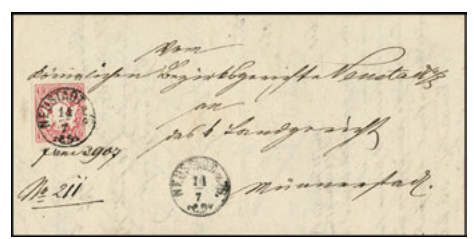 Vom
Königlichen Bezirksgerichte Neustadt a/S
an
das k. Landgericht
Münnerstadt.
NEUSTADT
14
7
No 211
NEUSTADT
14
7